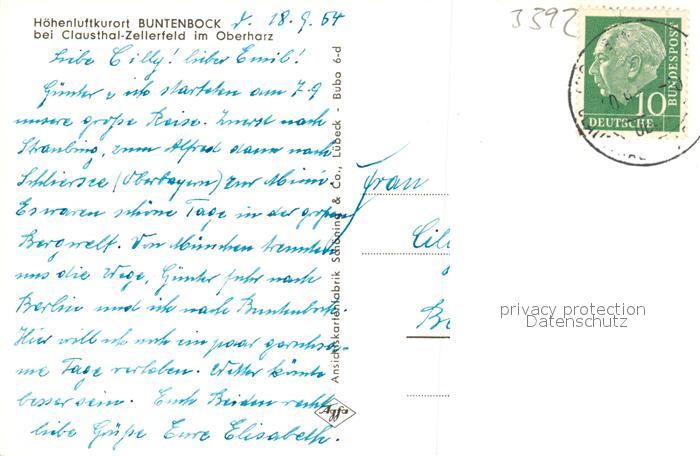 Höhenluftkurort BUNTENBOCK d. 18.9.64
bei Clausthal-Zellerfeld im Oberharz
Liebe Cilly! lieber Emil!
Günter u ich starteten am 7.9
unsere große Reise. Zuerst nach
Straubing, zum Alfred dann nach
Schliersee (Oberbayern) zur Mimi.
Es waren schöne Tage in der großen
Bergwelt. Von München trennten
uns die Wege, Günter fuhr nach
Berlin und ich nach Buntenbock.
Hier will ich noch ein paar geruhsa-
me Tage verleben. Wetter könnte
besser sein. Euch Beiden recht
liebe Grüße Eure Elisabeth.
Ansichtskartenfabrik Schöning & Co., Lübeck - Bubo 6-d
Agfa
3392
10
DEUTSCHE
BUNDESPOST
Frau
privacy protection
Datenschutz